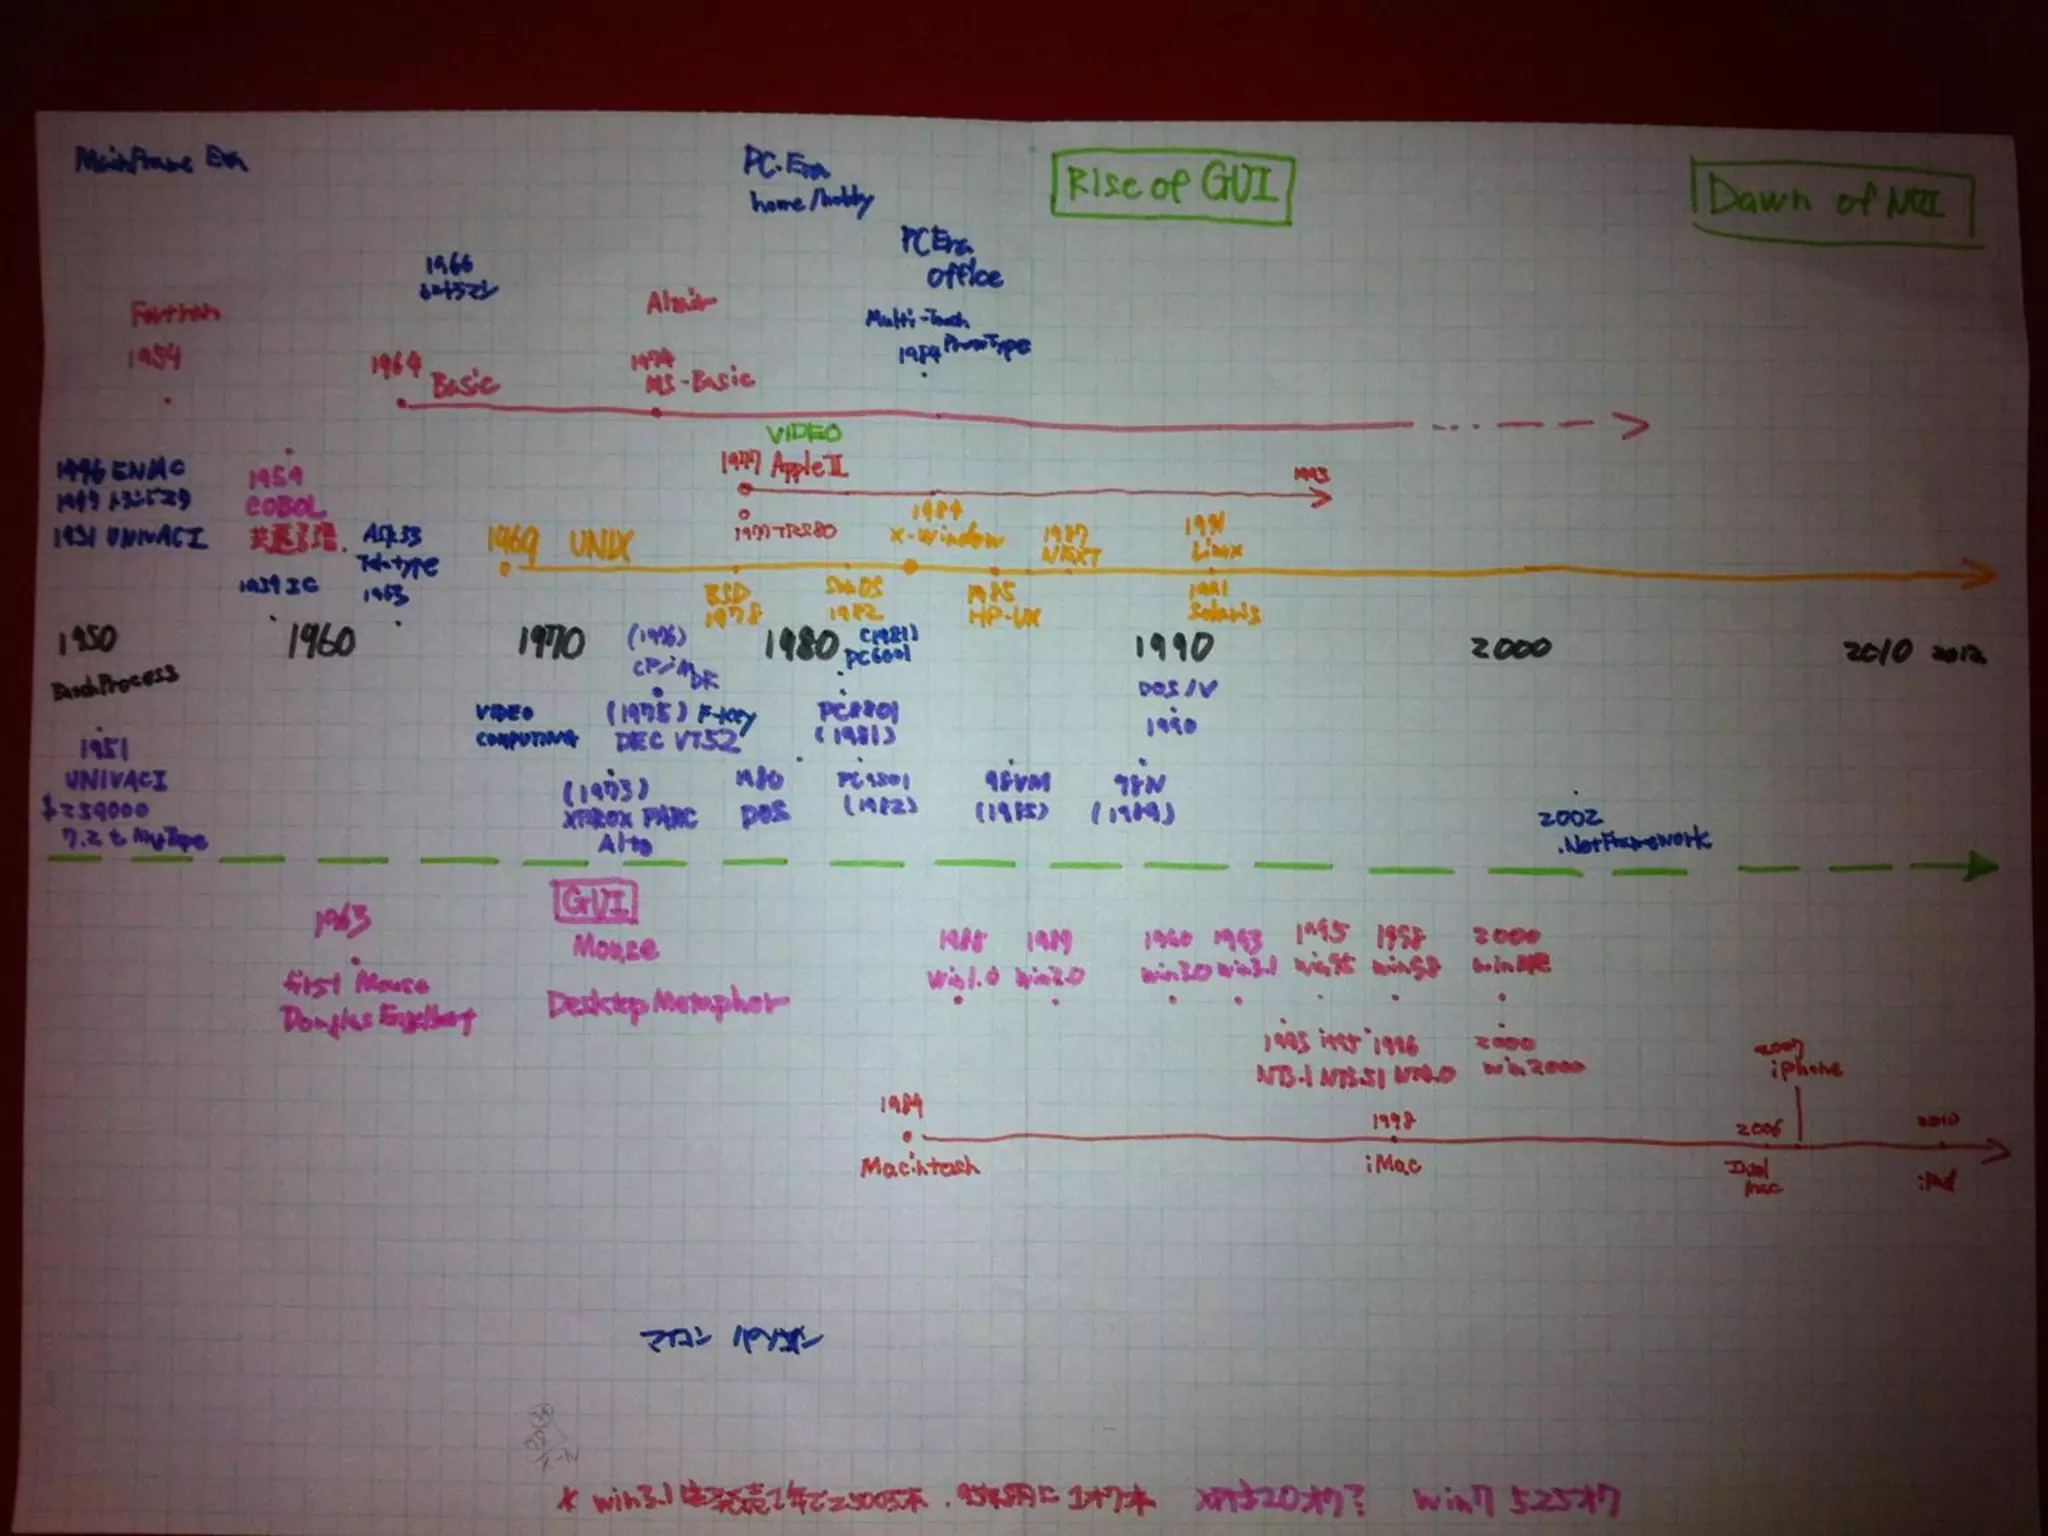 MainFrame Era
PC.Era
home/hobby
Rise of GUI
Dawn of NUI
PC Era
office
1966
Fortran
1954
Altair
Multi-Touch
1984 ProtoType
1964
Basic
1974
MS-Basic
VIDEO
1977 Apple II
1993
1977 TRS80
1946 ENIAC
1949 トランジスタ
1951 UNIVACI
1959
COBOL
ASR33
Teletype
1963
1959 IC
1969 UNIX
1984
X-Window
1987
NEXT
1991
Linux
BSD
1978
SunOS
1982
1985
HP-UX
1991
Solaris
1950
1960
1970
1980
1990
2000
2010 2012
BatchProcess
(1976)
CP/M
(1981)
PC6001
DOS/V
1990
VIDEO
COMPUTING
(1975) F-key
DEC VT52
PC8801
(1981)
1951
UNIVACI
(1973)
XEROX PARC
Alto
1980
DOS
PC9801
(1982)
98VM
(1985)
98N
(1989)
2002
.NetFramework
1963
first Mouse
Douglas Engelbart
GUI
Mouse
Desktop Metaphor
1985
Win1.0
1989
Win2.0
1990
Win3.0
1993
Win3.1
1995
Win95
1998
Win98
2000
WinME
1995
NT3.51
1996
NT4.0
2000
Win2000
2007
iPhone
1984
Macintosh
1998
iMac
2006
Intel
Mac
2010
iPad
マイコン パソコン
Win7 525オク